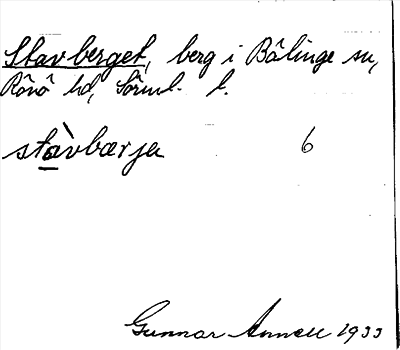 Stavberget, berg i Bälinge sn,
Rönö hd, Sörml. l.
stàvbærja 6
Gunnar Annell 1933